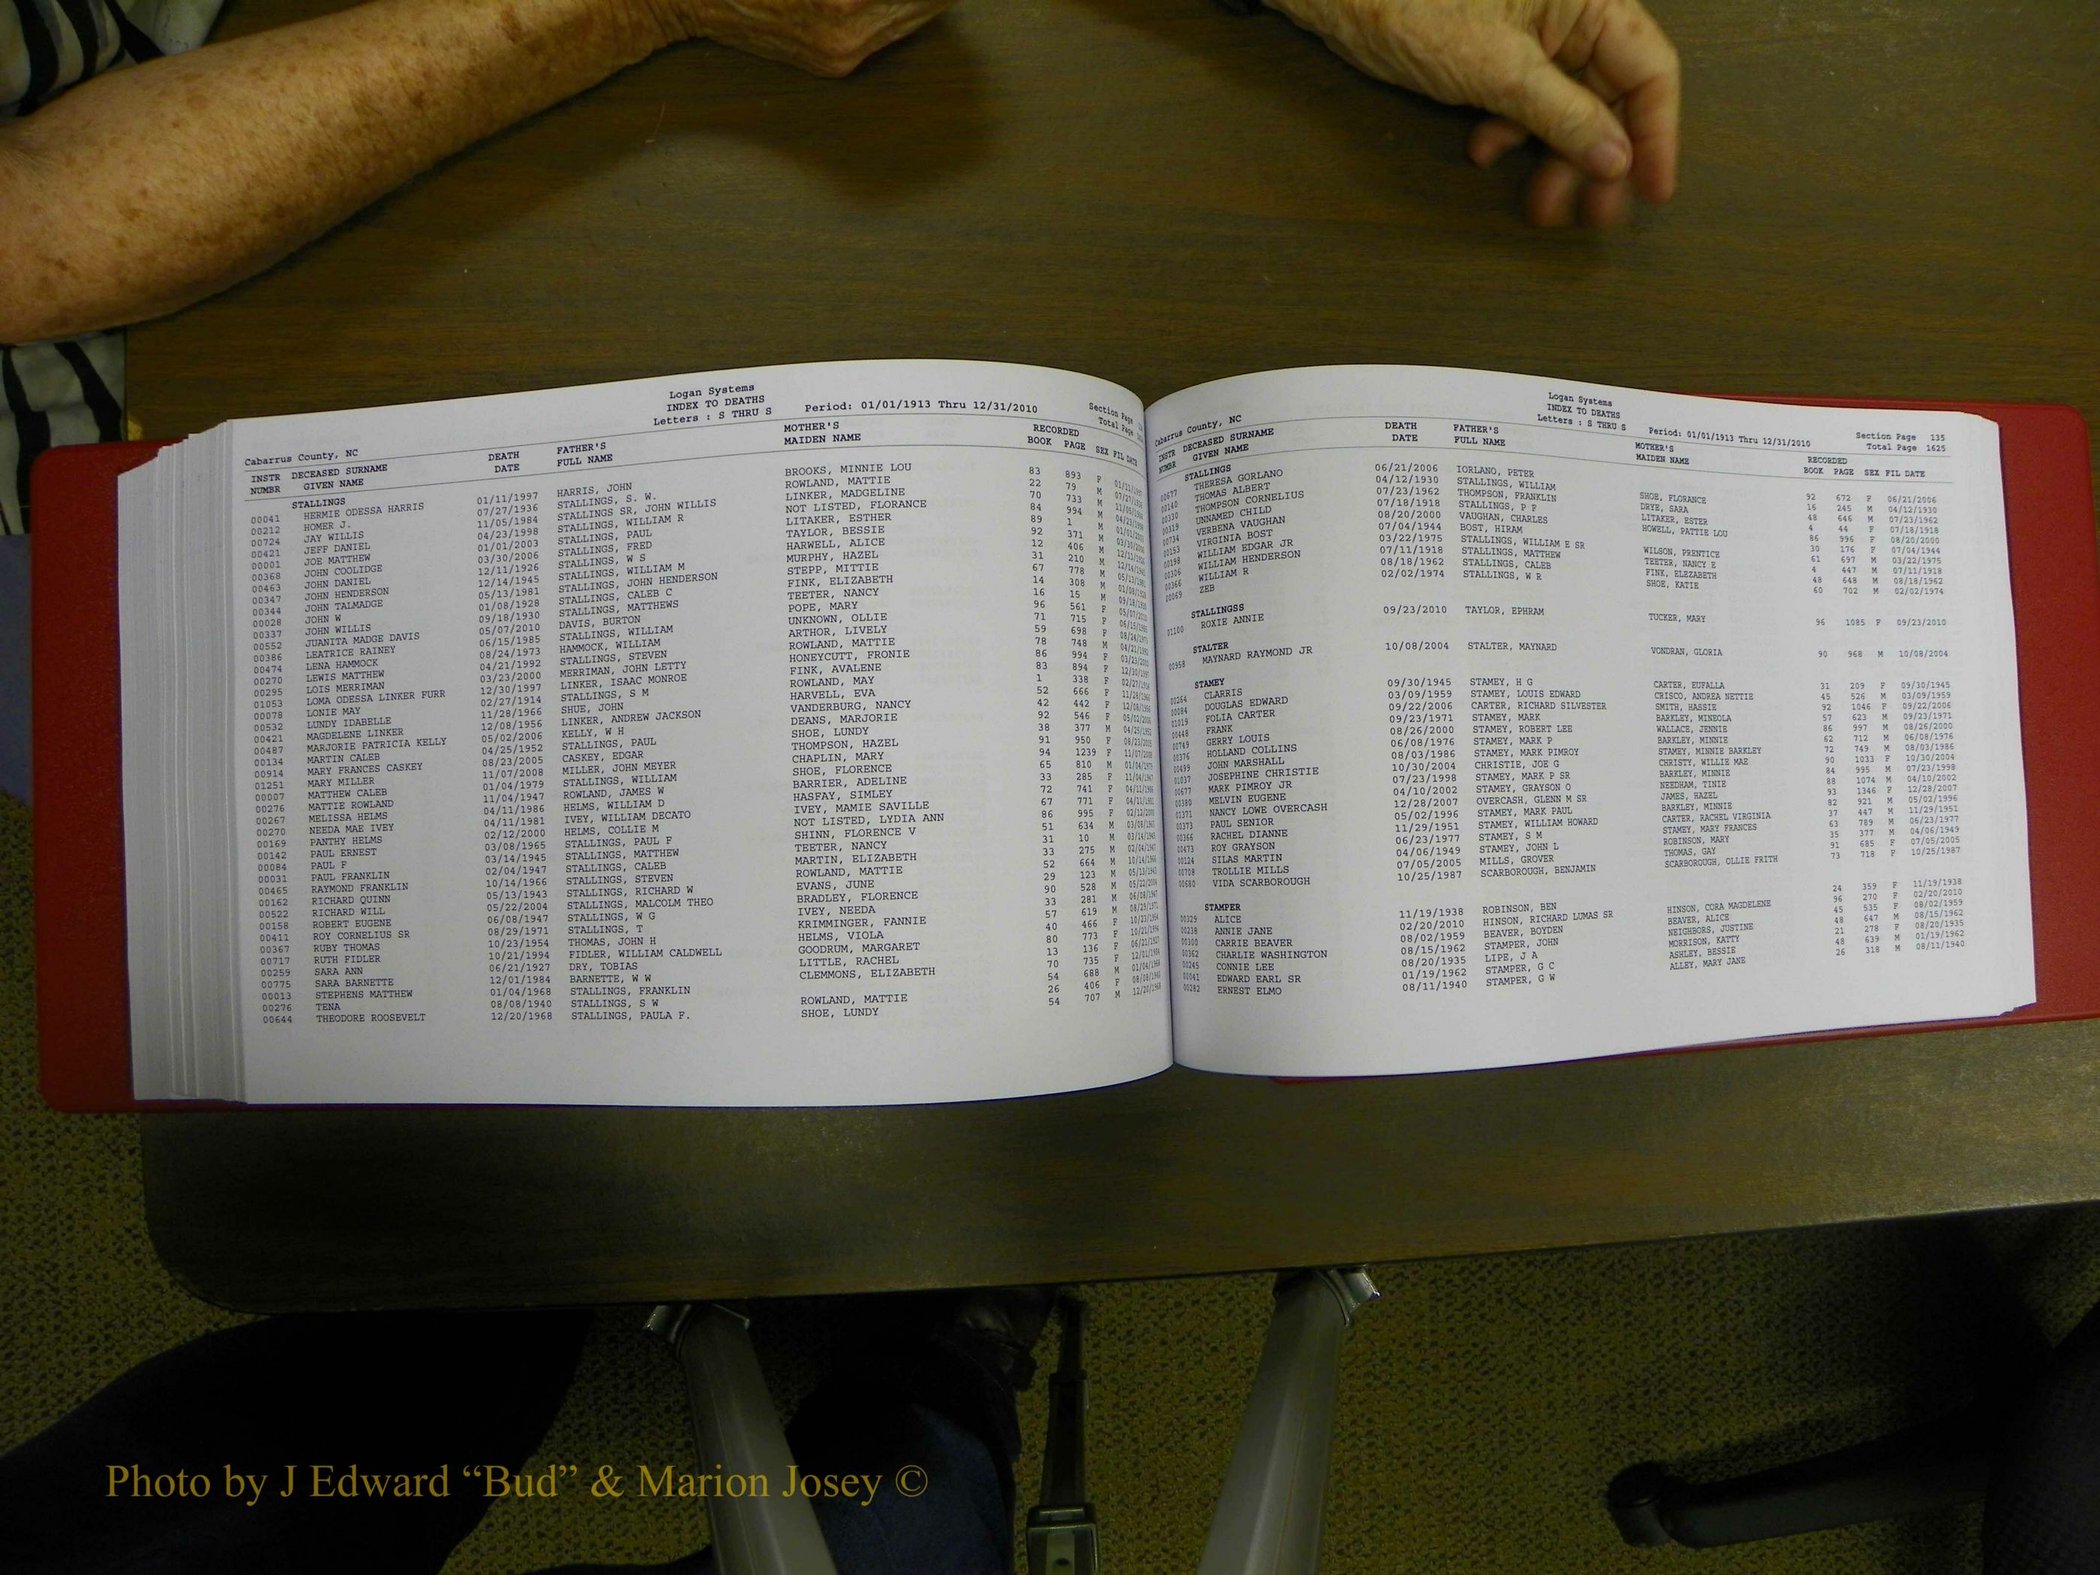 Logan Systems
INDEX TO DEATHS
Letters : S THRU S Period: 01/01/1913 Thru 12/31/2010
Cabarrus County, NC
Section Page
Total Page
INSTR DECEASED SURNAME DEATH FATHER'S MOTHER'S RECORDED
NUMBR GIVEN NAME DATE FULL NAME MAIDEN NAME BOOK PAGE SEX FIL DATE
STALLINGS
00041 HERMIE ODESSA HARRIS 01/11/1997 HARRIS, JOHN BROOKS, MINNIE LOU 83 893 F
00212 HOMER J. 07/27/1936 STALLINGS, S. W. ROWLAND, MATTIE 22 79 M
00724 JAY WILLIS 11/05/1984 STALLINGS SR, JOHN WILLIS LINKER, MADGELINE 70 733 M
00421 JEFF DANIEL 04/23/1998 STALLINGS, WILLIAM R NOT LISTED, FLORANCE 84 994 M
00001 JOE MATTHEW 01/01/2003 STALLINGS, PAUL LITAKER, ESTHER 89 1 M
00368 JOHN COOLIDGE 03/30/2006 STALLINGS, FRED TAYLOR, BESSIE 92 371 M
00463 JOHN DANIEL 12/11/1926 STALLINGS, W S HARWELL, ALICE 12 406 M
00347 JOHN HENDERSON 12/14/1945 STALLINGS, WILLIAM M MURPHY, HAZEL 31 210 M
00344 JOHN TALMADGE 05/13/1981 STALLINGS, JOHN HENDERSON STEPP, MITTIE 67 778 M
00028 JOHN W 01/08/1928 STALLINGS, CALEB C FINK, ELIZABETH 14 308 M
00337 JOHN WILLIS 09/18/1930 STALLINGS, MATTHEWS TEETER, NANCY 16 15 M
00552 JUANITA MADGE DAVIS 05/07/2010 DAVIS, BURTON POPE, MARY 96 561 F
00386 LEATRICE RAINEY 06/15/1985 STALLINGS, WILLIAM UNKNOWN, OLLIE 71 715 F
00474 LENA HAMMOCK 08/24/1973 HAMMOCK, WILLIAM ARTHOR, LIVELY 59 698 F
00270 LEWIS MATTHEW 04/21/1992 STALLINGS, STEVEN ROWLAND, MATTIE 78 748 M
00295 LOIS MERRIMAN 03/23/2000 MERRIMAN, JOHN LETTY HONEYCUTT, FRONIE 86 994 F
01053 LOMA ODESSA LINKER FURR 12/30/1997 LINKER, ISAAC MONROE FINK, AVALENE 83 894 F
00078 LONIE MAY 02/27/1914 STALLINGS, S M ROWLAND, MAY 1 338 F
00532 LUNDY IDABELLE 11/28/1966 SHUE, JOHN HARVELL, EVA 52 666 F
00421 MAGDELENE LINKER 12/08/1956 LINKER, ANDREW JACKSON VANDERBURG, NANCY 42 442 F
00487 MARJORIE PATRICIA KELLY 05/02/2006 KELLY, W H DEANS, MARJORIE 92 546 F
00134 MARTIN CALEB 04/25/1952 STALLINGS, PAUL SHOE, LUNDY 38 377 M
00914 MARY FRANCES CASKEY 08/23/2005 CASKEY, EDGAR THOMPSON, HAZEL 91 950 F
01251 MARY MILLER 11/07/2008 MILLER, JOHN MEYER CHAPLIN, MARY 94 1239 F
00007 MATTHEW CALEB 01/04/1979 STALLINGS, WILLIAM SHOE, FLORENCE 65 810 M
00276 MATTIE ROWLAND 11/04/1947 ROWLAND, JAMES W BARRIER, ADELINE 33 285 F
00267 MELISSA HELMS 04/11/1986 HELMS, WILLIAM D HASFAY, SIMLEY 72 741 F
00270 NEEDA MAE IVEY 04/11/1981 IVEY, WILLIAM DECATO IVEY, MAMIE SAVILLE 67 771 F
00169 PANTHY HELMS 02/12/2000 HELMS, COLLIE M NOT LISTED, LYDIA ANN 86 995 F
00142 PAUL ERNEST 03/08/1965 STALLINGS, PAUL F SHINN, FLORENCE V 51 634 M
00084 PAUL F 03/14/1945 STALLINGS, MATTHEW TEETER, NANCY 31 10 M
00031 PAUL FRANKLIN 02/04/1947 STALLINGS, CALEB MARTIN, ELIZABETH 33 275 M
00465 RAYMOND FRANKLIN 10/14/1966 STALLINGS, STEVEN ROWLAND, MATTIE 52 664 M
00162 RICHARD QUINN 05/13/1943 STALLINGS, RICHARD W EVANS, JUNE 29 123 M
00522 RICHARD WILL 05/22/2004 STALLINGS, MALCOLM THEO BRADLEY, FLORENCE 90 528 M
00158 ROBERT EUGENE 06/08/1947 STALLINGS, W G IVEY, NEEDA 33 281 M
00411 ROY CORNELIUS SR 08/29/1971 STALLINGS, T KRIMMINGER, FANNIE 57 619 M
00367 RUBY THOMAS 10/23/1954 THOMAS, JOHN H HELMS, VIOLA 40 466 F
00717 RUTH FIDLER 10/21/1994 FIDLER, WILLIAM CALDWELL GOODRUM, MARGARET 80 773 F
00259 SARA ANN 06/21/1927 DRY, TOBIAS LITTLE, RACHEL 13 136 F
00775 SARA BARNETTE 12/01/1984 BARNETTE, W W CLEMMONS, ELIZABETH 70 735 F
00013 STEPHENS MATTHEW 01/04/1968 STALLINGS, FRANKLIN 54 688 M
00276 TENA 08/08/1940 STALLINGS, S W ROWLAND, MATTIE 26 406 F
00644 THEODORE ROOSEVELT 12/20/1968 STALLINGS, PAULA F. SHOE, LUNDY 54 707 M
Logan Systems
INDEX TO DEATHS
Letters : S THRU S Period: 01/01/1913 Thru 12/31/2010
Cabarrus County, NC
Section Page 135
Total Page 1625
INSTR DECEASED SURNAME DEATH FATHER'S MOTHER'S RECORDED
NUMBR GIVEN NAME DATE FULL NAME MAIDEN NAME BOOK PAGE SEX FIL DATE
STALLINGS
00677 THERESA GORLANO 06/21/2006 IORLANO, PETER 92 672 F 06/21/2006
00140 THOMAS ALBERT 04/12/1930 STALLINGS, WILLIAM SHOE, FLORANCE 16 245 M 04/12/1930
00330 THOMPSON CORNELIUS 07/23/1962 THOMPSON, FRANKLIN DRYE, SARA 48 646 M 07/23/1962
00319 UNNAMED CHILD 07/18/1918 STALLINGS, P F LITAKER, ESTER 4 44 F 07/18/1918
00734 VERBENA VAUGHAN 08/20/2000 VAUGHAN, CHARLES HOWELL, PATTIE LOU 86 996 F 08/20/2000
00153 VIRGINIA BOST 07/04/1944 BOST, HIRAM 30 176 F 07/04/1944
00198 WILLIAM EDGAR JR 03/22/1975 STALLINGS, WILLIAM E SR WILSON, PRENTICE 61 697 M 03/22/1975
00306 WILLIAM HENDERSON 07/11/1918 STALLINGS, MATTHEW TEETER, NANCY E 4 447 M 07/11/1918
00366 WILLIAM R 08/18/1962 STALLINGS, CALEB FINK, ELEZABETH 48 648 M 08/18/1962
00069 ZEB 02/02/1974 STALLINGS, W R SHOE, KATIE 60 702 M 02/02/1974
STALLINGSS
01100 ROXIE ANNIE 09/23/2010 TAYLOR, EPHRAM TUCKER, MARY 96 1085 F 09/23/2010
STALTER
00958 MAYNARD RAYMOND JR 10/08/2004 STALTER, MAYNARD VONDRAN, GLORIA 90 968 M 10/08/2004
STAMEY
00264 CLARRIS 09/30/1945 STAMEY, H G CARTER, EUFALLA 31 209 F 09/30/1945
00084 DOUGLAS EDWARD 03/09/1959 STAMEY, LOUIS EDWARD CRISCO, ANDREA NETTIE 45 526 M 03/09/1959
01019 FOLIA CARTER 09/22/2006 CARTER, RICHARD SILVESTER SMITH, HASSIE 92 1046 F 09/22/2006
00448 FRANK 09/23/1971 STAMEY, MARK BARKLEY, MINEOLA 57 623 M 09/23/1971
00749 GERRY LOUIS 08/26/2000 STAMEY, ROBERT LEE WALLACE, JENNIE 86 997 M 08/26/2000
00376 HOLLAND COLLINS 06/08/1976 STAMEY, MARK P BARKLEY, MINNIE 62 712 M 06/08/1976
00499 JOHN MARSHALL 08/03/1986 STAMEY, MARK PIMROY STAMEY, MINNIE BARKLEY 72 749 M 08/03/1986
01037 JOSEPHINE CHRISTIE 10/30/2004 CHRISTIE, JOE G CHRISTY, WILLIE MAE 90 1033 F 10/30/2004
00677 MARK PIMROY JR 07/23/1998 STAMEY, MARK P SR BARKLEY, MINNIE 84 995 M 07/23/1998
00380 MELVIN EUGENE 04/10/2002 STAMEY, GRAYSON O NEEDHAM, TINIE 88 1074 M 04/10/2002
00371 NANCY LOWE OVERCASH 12/28/2007 OVERCASH, GLENN M SR JAMES, HAZEL 93 1346 F 12/28/2007
00373 PAUL SENIOR 05/02/1996 STAMEY, MARK PAUL BARKLEY, MINNIE 82 921 M 05/02/1996
00366 RACHEL DIANNE 11/29/1951 STAMEY, WILLIAM HOWARD CARTER, RACHEL VIRGINIA 37 447 M 11/29/1951
00473 ROY GRAYSON 06/23/1977 STAMEY, S M STAMEY, MARY FRANCES 63 789 M 06/23/1977
00124 SILAS MARTIN 04/06/1949 STAMEY, JOHN L ROBINSON, MARY 35 377 M 04/06/1949
00708 TROLLIE MILLS 07/05/2005 MILLS, GROVER THOMAS, GAY 91 685 F 07/05/2005
00680 VIDA SCARBOROUGH 10/25/1987 SCARBOROUGH, BENJAMIN SCARBOROUGH, OLLIE FRITH 73 718 F 10/25/1987
STAMPER
00329 ALICE 11/19/1938 ROBINSON, BEN 24 359 F 11/19/1938
00238 ANNIE JANE 02/20/2010 HINSON, RICHARD LUMAS SR HINSON, CORA MAGDELENE 96 270 F 02/20/2010
00300 CARRIE BEAVER 08/02/1959 BEAVER, BOYDEN BEAVER, ALICE 45 535 F 08/02/1959
00362 CHARLIE WASHINGTON 08/15/1962 STAMPER, JOHN NEIGHBORS, JUSTINE 48 647 M 08/15/1962
00245 CONNIE LEE 08/20/1935 LIPE, J A MORRISON, KATTY 21 278 F 08/20/1935
00041 EDWARD EARL SR 01/19/1962 STAMPER, G C ASHLEY, BESSIE 48 639 M 01/19/1962
00282 ERNEST ELMO 08/11/1940 STAMPER, G W ALLEY, MARY JANE 26 318 M 08/11/1940
Photo by J Edward “Bud” & Marion Josey ©